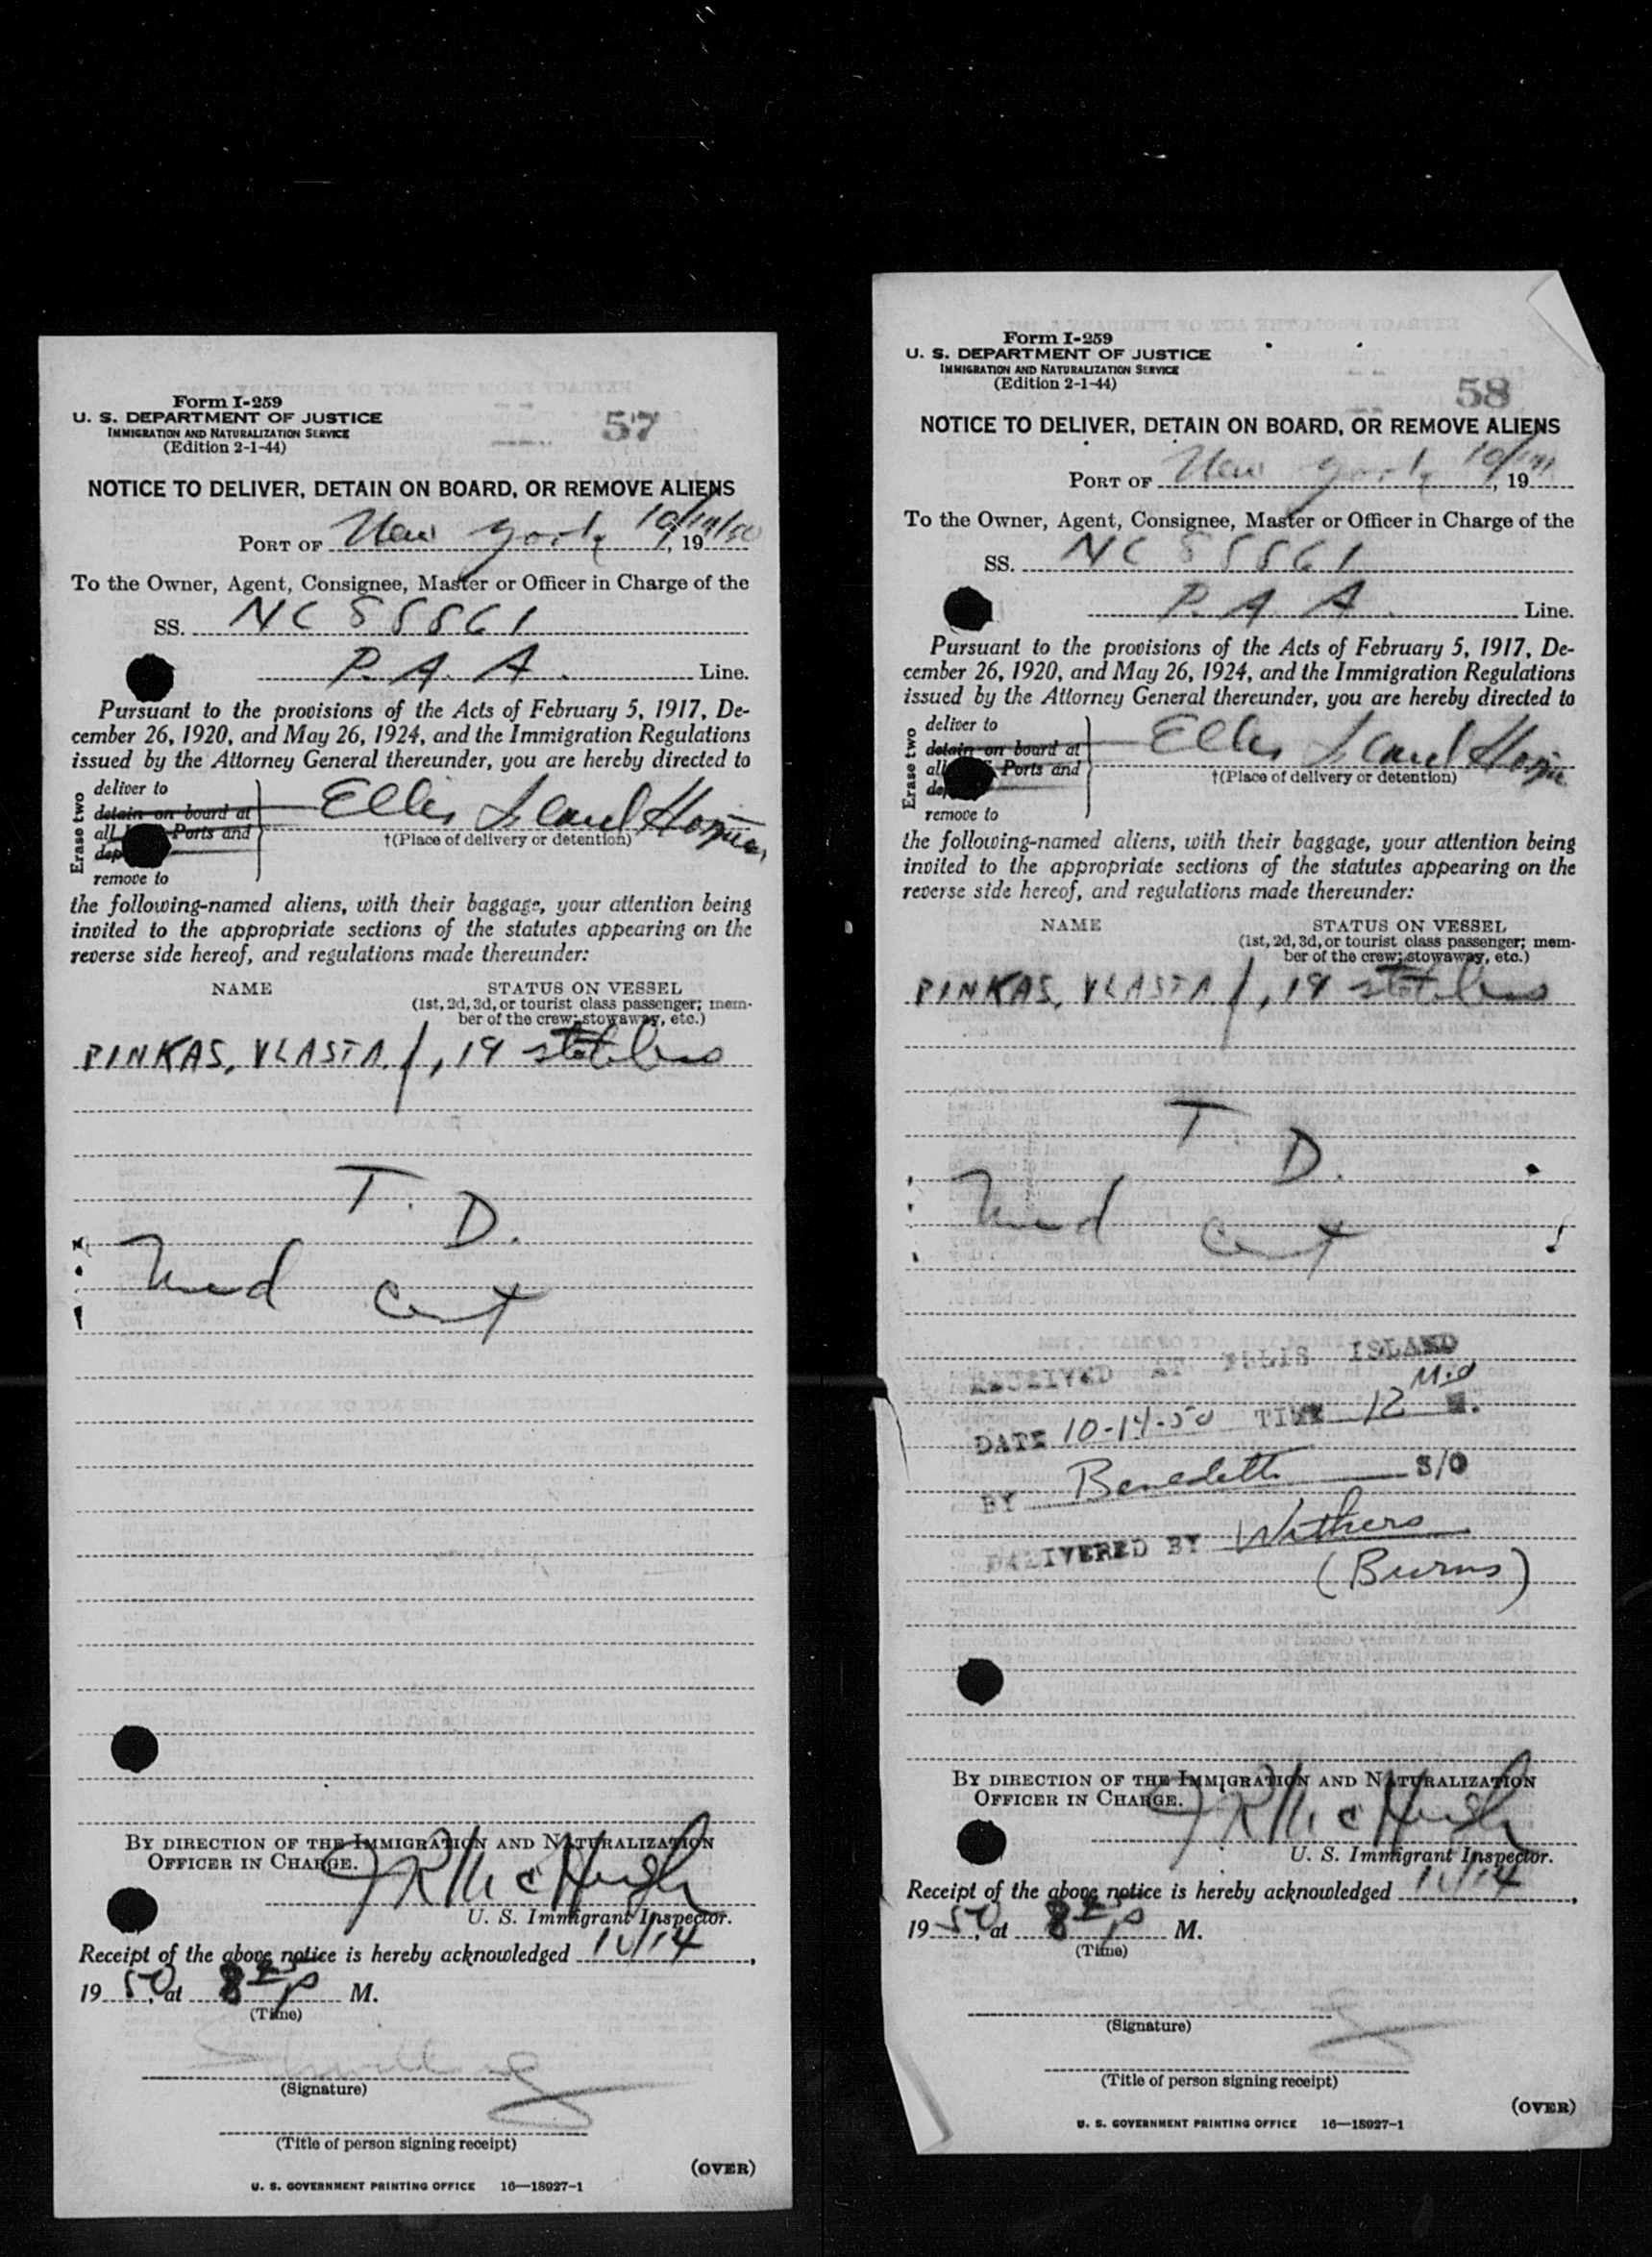 Form I-259
U. S. DEPARTMENT OF JUSTICE
IMMIGRATION AND NATURALIZATION SERVICE
(Edition 2-1-44)
57
NOTICE TO DELIVER, DETAIN ON BOARD, OR REMOVE ALIENS
PORT OF New York 10/14/50, 19
To the Owner, Agent, Consignee, Master or Officer in Charge of the
SS. NC 88861
P. A. A. Line.
Pursuant to the provisions of the Acts of February 5, 1917, De-
cember 26, 1920, and May 26, 1924, and the Immigration Regulations
issued by the Attorney General thereunder, you are hereby directed to
Erase two
deliver to
detain on board at
all Ports and
dep
remove to
Ellis Island
†(Place of delivery or detention)
the following-named aliens, with their baggage, your attention being
invited to the appropriate sections of the statutes appearing on the
reverse side hereof, and regulations made thereunder:
NAME STATUS ON VESSEL
(1st, 2d, 3d, or tourist class passenger; mem-
ber of the crew; stowaway, etc.)
PINKAS, VLASTA /, 19 stateless
T. D.
Med Cert
BY DIRECTION OF THE IMMIGRATION AND NATURALIZATION
OFFICER IN CHARGE.
J R McHugh
U. S. Immigrant Inspector.
Receipt of the above notice is hereby acknowledged 10/14,
19 50, at 8 P M.
(Time)
(Signature)
(Title of person signing receipt)
(OVER)
U. S. GOVERNMENT PRINTING OFFICE 16—18927-1
Form I-259
U. S. DEPARTMENT OF JUSTICE
IMMIGRATION AND NATURALIZATION SERVICE
(Edition 2-1-44)
58
NOTICE TO DELIVER, DETAIN ON BOARD, OR REMOVE ALIENS
PORT OF New York 10/14, 19
To the Owner, Agent, Consignee, Master or Officer in Charge of the
SS. NC 88861
P. A. A. Line.
Pursuant to the provisions of the Acts of February 5, 1917, De-
cember 26, 1920, and May 26, 1924, and the Immigration Regulations
issued by the Attorney General thereunder, you are hereby directed to
Erase two
deliver to
detain on board at
all Ports and
dep
remove to
Ellis Island
†(Place of delivery or detention)
the following-named aliens, with their baggage, your attention being
invited to the appropriate sections of the statutes appearing on the
reverse side hereof, and regulations made thereunder:
NAME STATUS ON VESSEL
(1st, 2d, 3d, or tourist class passenger; mem-
ber of the crew; stowaway, etc.)
PINKAS, VLASTA /, 19 stateless
T. D.
Med Cert
RECEIVED AT ELLIS ISLAND
DATE 10-14-50 TIME 12 Mid M.
BY Benedetti S/O
DELIVERED BY Withers
(Burns)
BY DIRECTION OF THE IMMIGRATION AND NATURALIZATION
OFFICER IN CHARGE.
J R McHugh
U. S. Immigrant Inspector.
Receipt of the above notice is hereby acknowledged 10/14,
19 50, at 8 P M.
(Time)
(Signature)
(Title of person signing receipt)
(OVER)
U. S. GOVERNMENT PRINTING OFFICE 16—18927-1